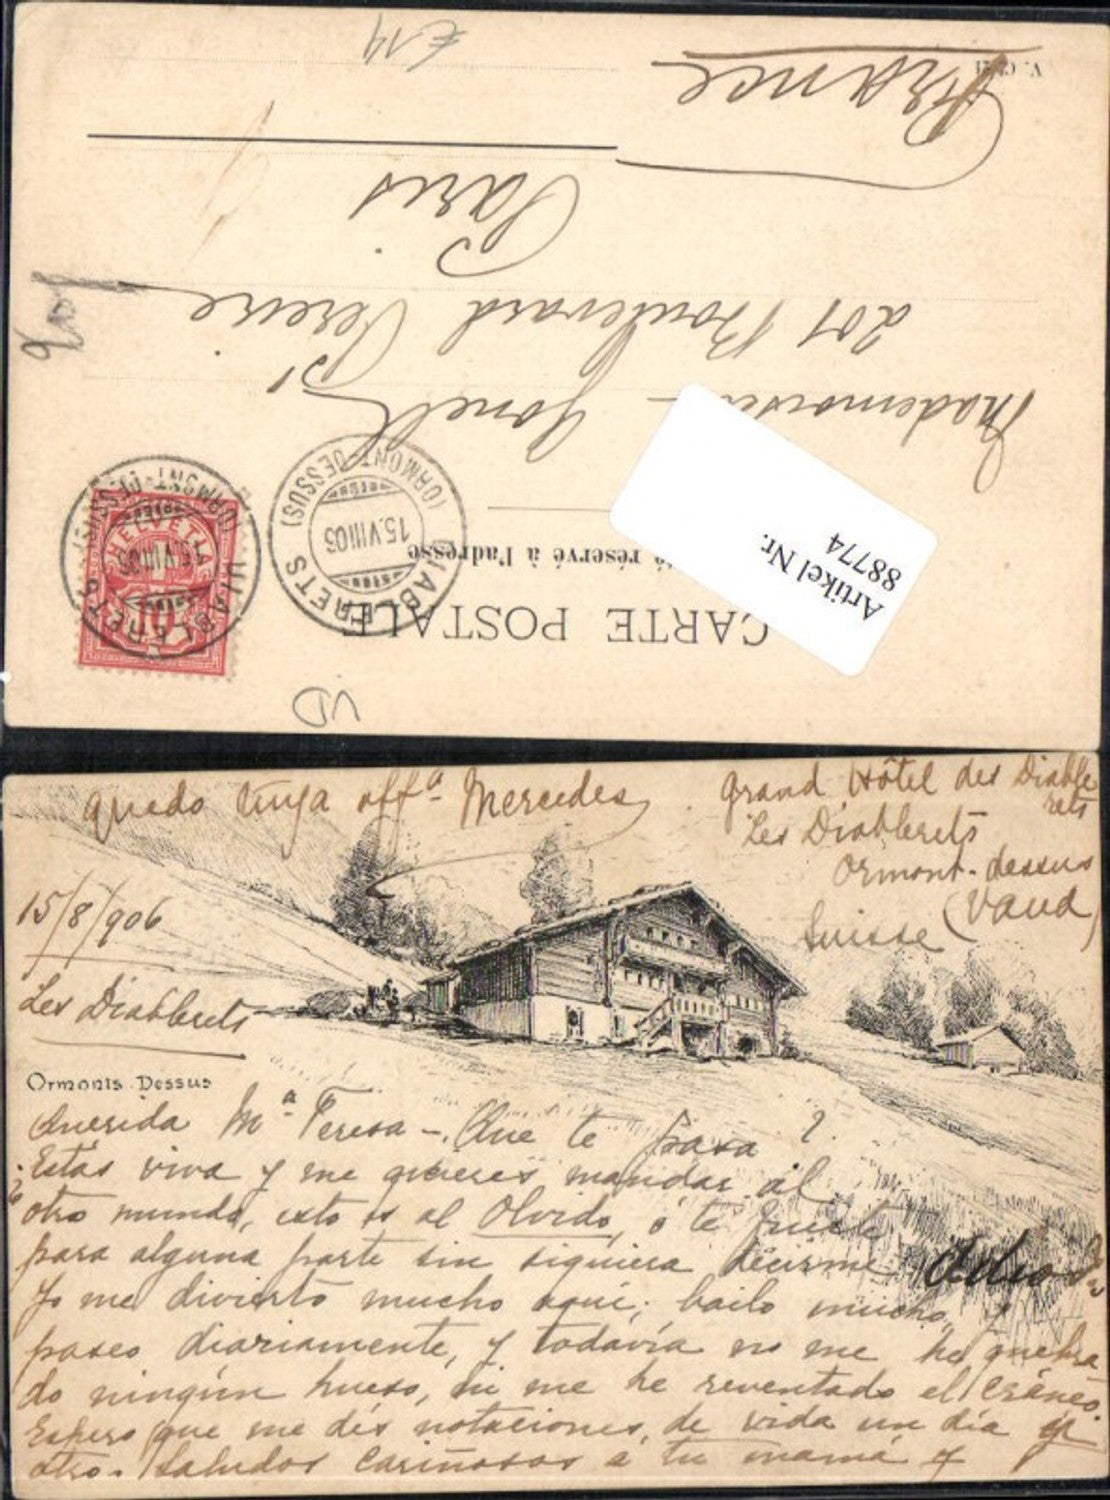 £ 14
France
Paris
201 Boulevard Pereire
Mademoiselle
CARTE POSTALE
réservé à l'adresse
DIABLERETS
(ORMONT-DESSUS)
15.VIII 06
HELVETIA
10
DIABLERETS
(ORMONT-DESSUS)
15.VIII 06
Artikel Nr.
88774
VD
quedo tuya affª Mercedes
Grand Hôtel des Diablerets
Les Diablerets
Ormont-dessus
(Vaud)
Suisse
15/8/906
Les Diablerets
Ormonts-Dessus
Querida Mª Teresa -. Que te pasa?
Estas viva y me quieres mandar al
otro mundo, esto es al Olvido, ó te fuiste
para alguna parte sin siquiera decirme adios
Yo me divierto mucho aquí; bailo mucho, y
paseo diariamente, y todavía no me he quebra
do ningún hueso, ni me he reventado el cráneo.
Espero que me dés notaciones de vida un día y
otro. Saludos cariñosos á tu mamá y